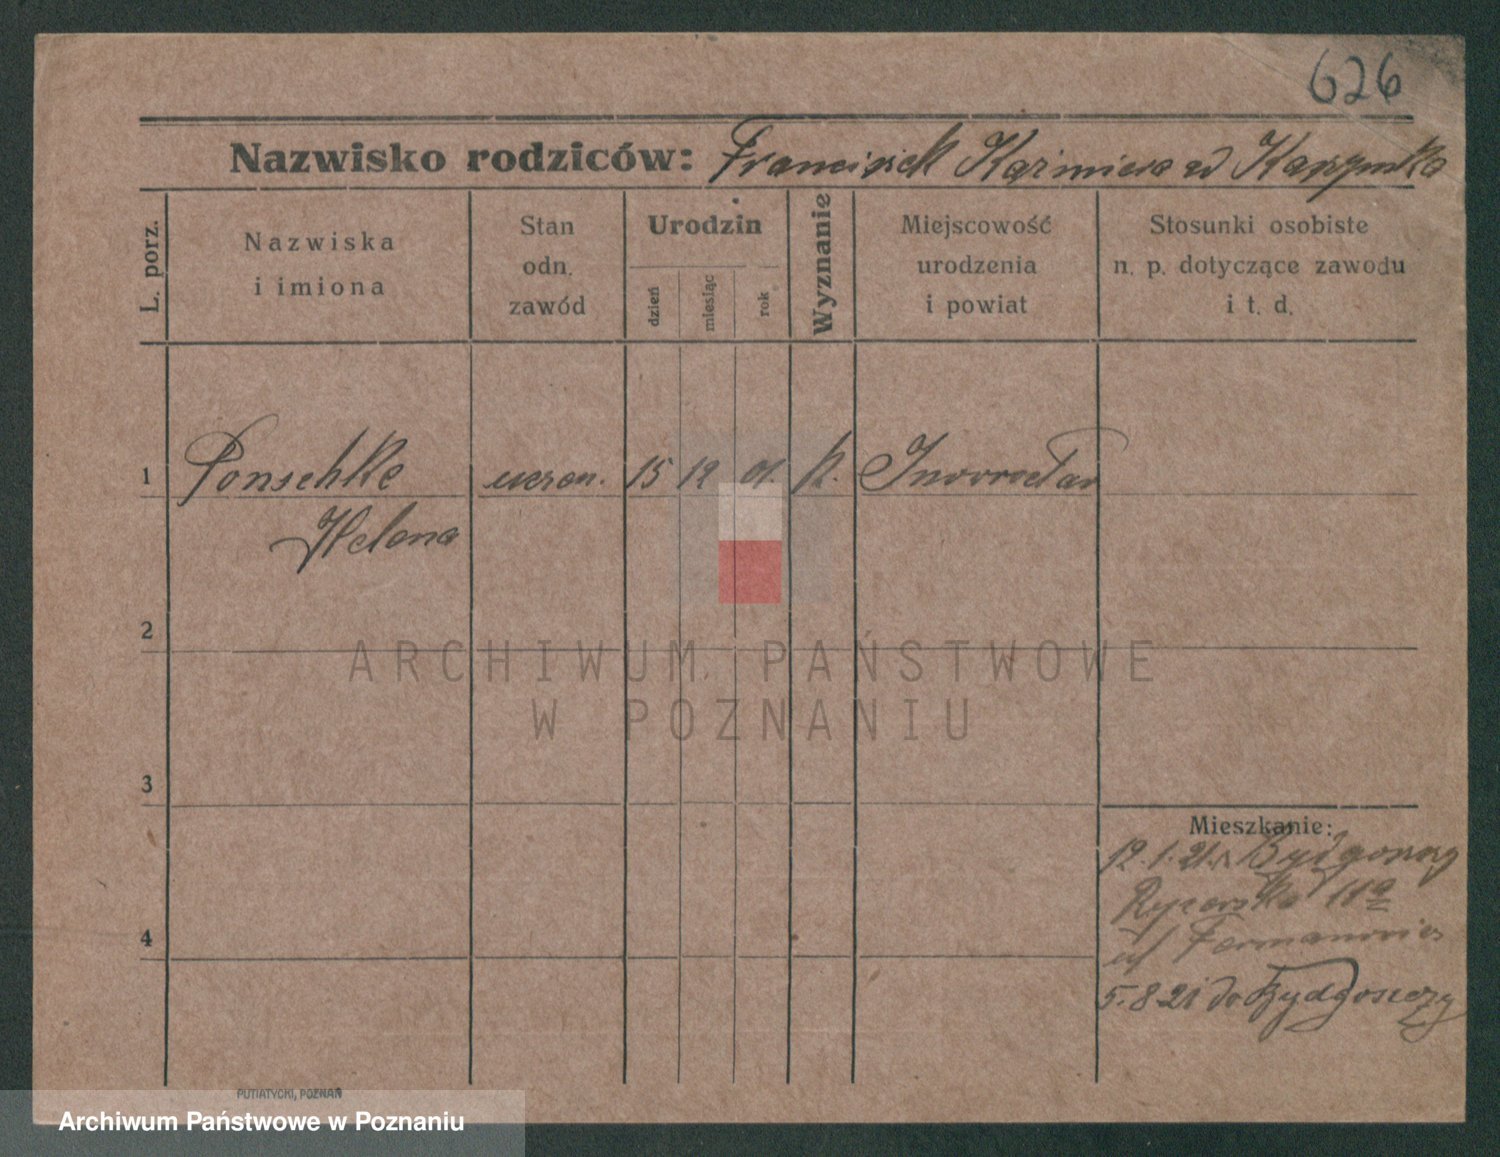 626
Nazwisko rodziców: Franciszek Kaźmierz
L. porz.
Nazwiska i imiona
Stan odn. zawód
Urodzin
dzień
miesiąc
rok
Wyznanie
Miejscowość urodzenia i powiat
Stosunki osobiste n. p. dotyczące zawodu i t. d.
1 Ponschke uczen. 15 12 01. k. Inowrocław
Helena
2
ARCHIWUM PAŃSTWOWE
W POZNANIU
3
Mieszkanie:
12.1.21. Bydgoszcz
Rycerska 11a
4
5.8 21 do Bydgoszczy
PUTIATYCKI, POZNAŃ
Archiwum Państwowe w Poznaniu